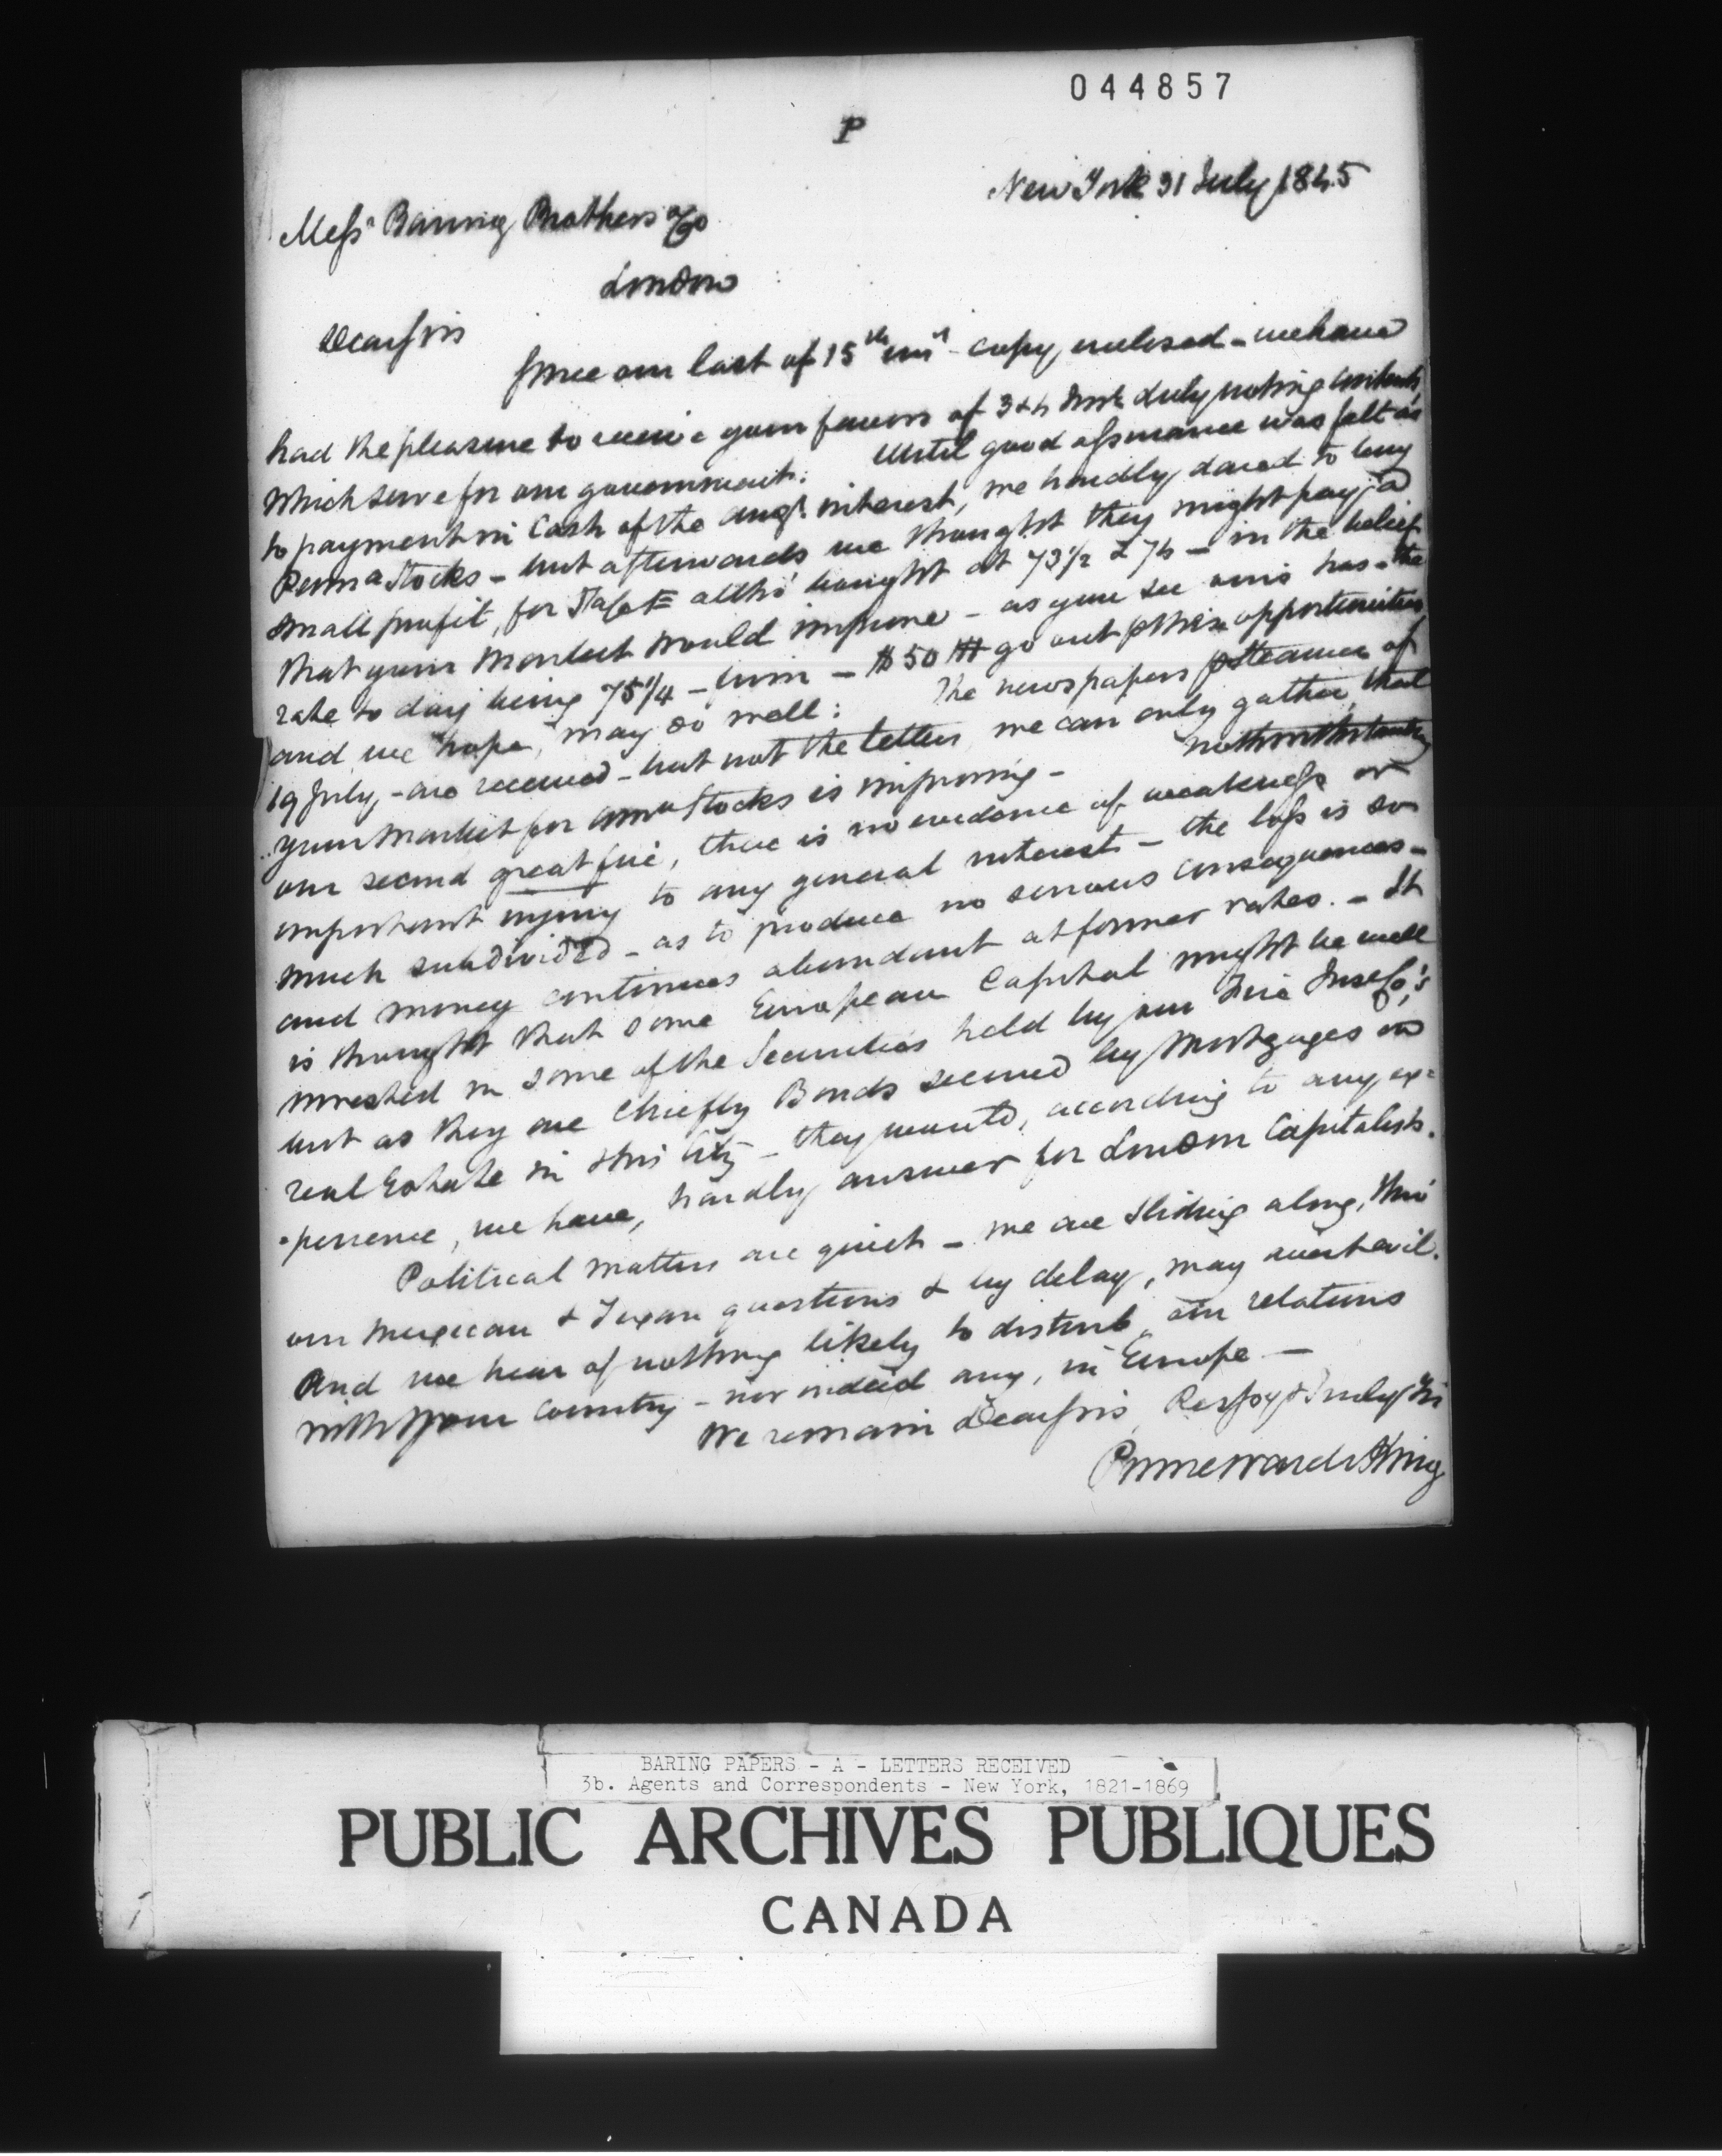 044857
P
New York 31 July 1845
Mess^rs Baring Brothers & Co
London
Dear Sirs
Since our last of 15th inst - copy enclosed - we have
had the pleasure to receive your favors of 3 & 4 duly noting contents
which serve for our government. Until good assurance was felt as
to payment in Cash of the Aug^t interest, we hardly dared to buy
Penn^a Stocks - but afterwards we thought they might pay a
small profit, for altho' bought at 73 1/2 & 74 - in the belief
that your Market would improve - as you see ours has - the
rate to day being 75 1/4 - firm - $50 go out p this opportunities
and we hope, may do well: The newspapers p steamer of
19 July, - are received - but not the letters we can only gather, that
your Market for Amn Stocks is improving - notwithstanding
our second great fire, there is no evidence of weakness or
important injury to any general interest - the loss is so
much subdivided - as to produce no serious consequences -
and money continues abundant at former rates. - It
is thought that some European Capital might be well
invested in some of the Securities held by our Fire Ins Co's
but as they are chiefly Bonds secured by Mortgages on
real Estate in this City - they would, according to any ex=
=perience, we have, hardly answer for London Capitalists.
Political matters are quiet - we are sliding along, thro'
our Mexican & Texan questions & by delay, may avert evil.
And we hear of nothing likely to disturb our relations
with your Country - nor indeed any, in Europe -
We remain Dear Sirs Resp^y & Truly Yrs
Prime Ward & King
BARING PAPERS - A - LETTERS RECEIVED
3b. Agents and Correspondents - New York, 1821-1869
PUBLIC ARCHIVES PUBLIQUES
CANADA